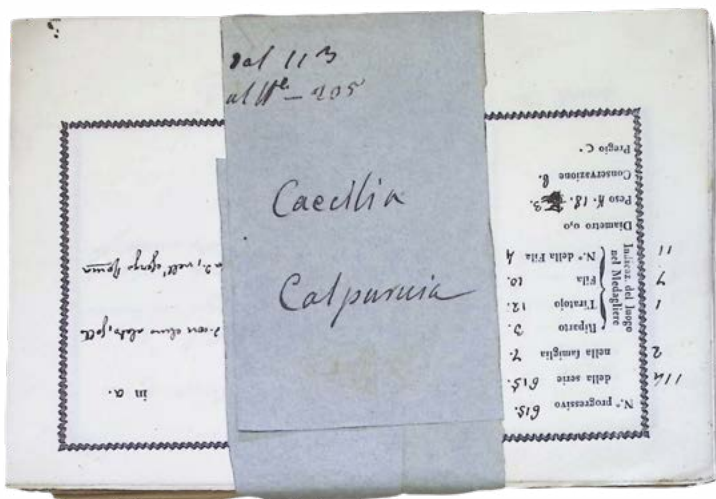 Dal 113
al N.e – 205
Caecilia
Calpurnia
N.° progressivo 615.
della serie 615.
nella famiglia 7.
Indicaz. del luogo
nel Medagliere
Riparto 3.
Tiratojo 12.
Fila 10.
N.° della Fila 4
Diametro 0,0
Peso 18. 3.
Conservazione
Pregio C.
114
2
1
7
11
in a.
con elmo alato,
nell'esergo Roma